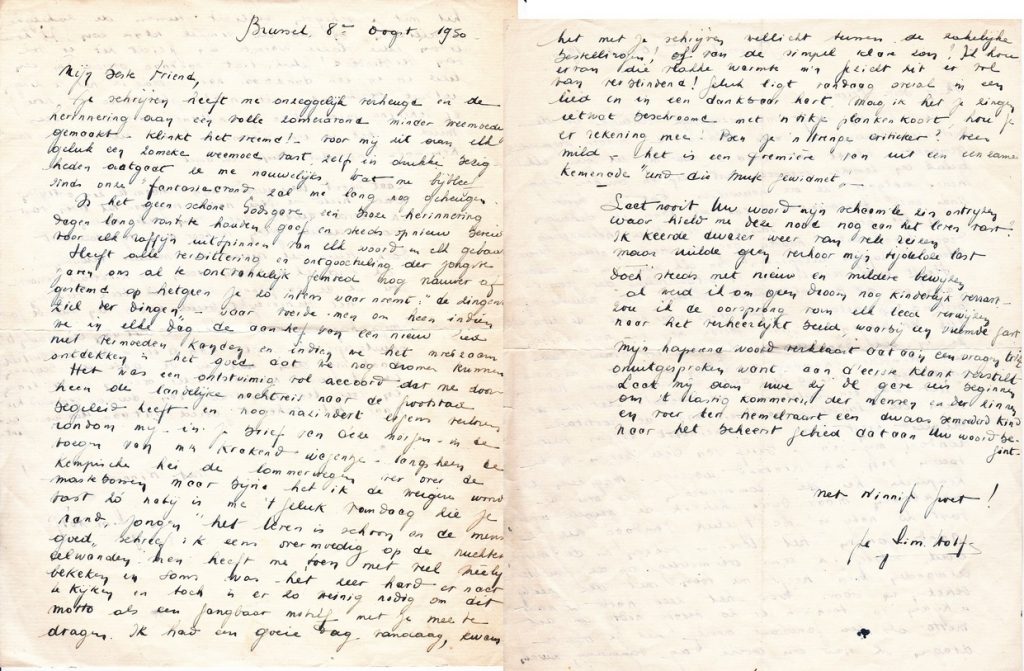 Brussel, 8en Oogst 1950
Mijn beste Friend,
Je schrijven heeft me onzeggelijk verheugd en de
herinnering aan een volle zomeravond minder weemoedig
gemaakt. Klinkt het vreemd! - voor mij zit aan elk
geluk een zomeke weemoed vast. Zelf in drukke bezig-
heden aatgaat ze me nauwelijks. Wat me bijbleef
sinds onze "fantasia-avond zal me lang nog geheugen.
Is het geen schone Godsgave een broze herinnering
dagen lang vast te houden, gaaf en steeds opnieuw bereid
voor elk raffijn uitspinnen van elk woord en elk gebaar
Heeft alle verbittering en ontgoocheling der jongste
jaren ons al te ontvankelijk gemoed nog nauwer af-
gestemd op hetgeen je zo intens waarneemt: "de dingen
ziel der dingen, - waar voerde men om heen indien
we in elke dag de aanhef van een nieuw lied
niet vermoeden konden en indien we het niet
ontdekken is het goed dat we nog dromen kunnen
Het was een onstuimig vol accoord dat me door-
heen de landelijke nachtreis naar de hoofdstad
begeleid heeft en nog nazindert
rondom mij in je brief van deze morgen - in de
van m'n krakend wiegentje - langsheen de
Kempische hei de lommerwegen ver over de
mastebomen maar bijna het ik de
vast zo nabij is me 't geluk vandaag die je
hand, jongen "het leven is schoon en de mens
goed, schreef ik eens overmoedig op de nuchtere
celwanden. Men heeft me toen met veel meelij
bekeken en soms was het zeer hard er naar
te kijken en toch is er zo weinig nodig om dit
motto als een gangbaar met je mee te
dragen. Ik had een goeie dag vandaag,
het met je schrijven wellicht tussen de zakelijke
bestellingen, of van de simpel klare zon! Ik hou
ervan die vlakke warmte m'n gezicht zit er vol
van verblindend! Geluk ligt vandaag overal in een
lied en in een dankbaar hart. Mag ik het je zingen
ietwat beschroomd met 'n tikje plankenkoorts, hou je
er rekening mee! Ben je 'n strenge criticker? wees
mild - het is een "première" van uit een eenzame
kemenade "und die Musik gewidmet" -
Laat nooit Uw woord mijn schaamele zin ontwijken
waar hield me deze node nog aan het leven vast
Ik keerde dwazer weer van vele reizen
maar milde geen verhoor mijn tijdelike last
Doch steeds met nieuw en mildere bewijzen
al werd ik om geen droom nog kinderlijk verrast-
zou ik de oorsprong van elk leed verwijzen
naar het verheerlijkt beeld, waarbij een vreemde gast
Mijn haperend woord verklaart dat aan een vragen
onuitgesproken want aan d'eerste klank verstilt
Laat mij dan uwe bij de gave reis beginnen
om 't lastig kommeren der mensen en der zinnen
en voer ten hemelvaart een dwaas bemoederd kind
naar het beheerst gebied dat aan Uw woord be-
gint.
met Winnif groet!
Je